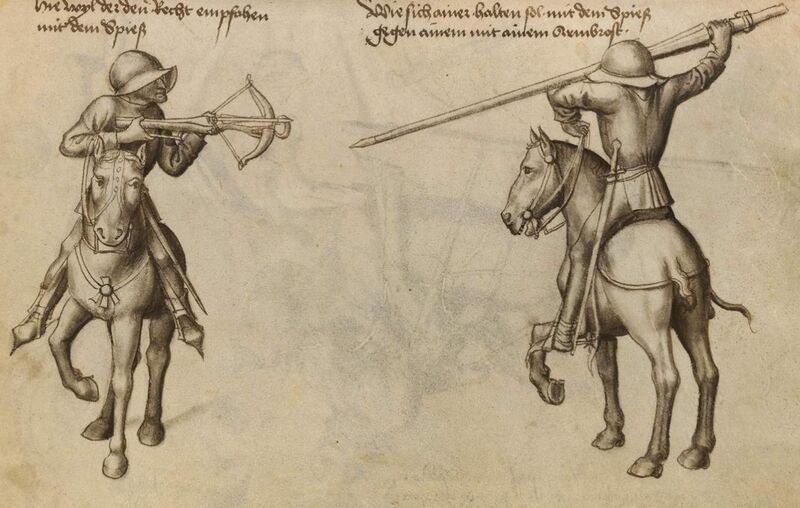 Hie wyl der den Recht empfahen
mit dem Spieß
Wie sich ainer halten sol mit dem Spieß
gegen ainem mit ainem Armbrost.